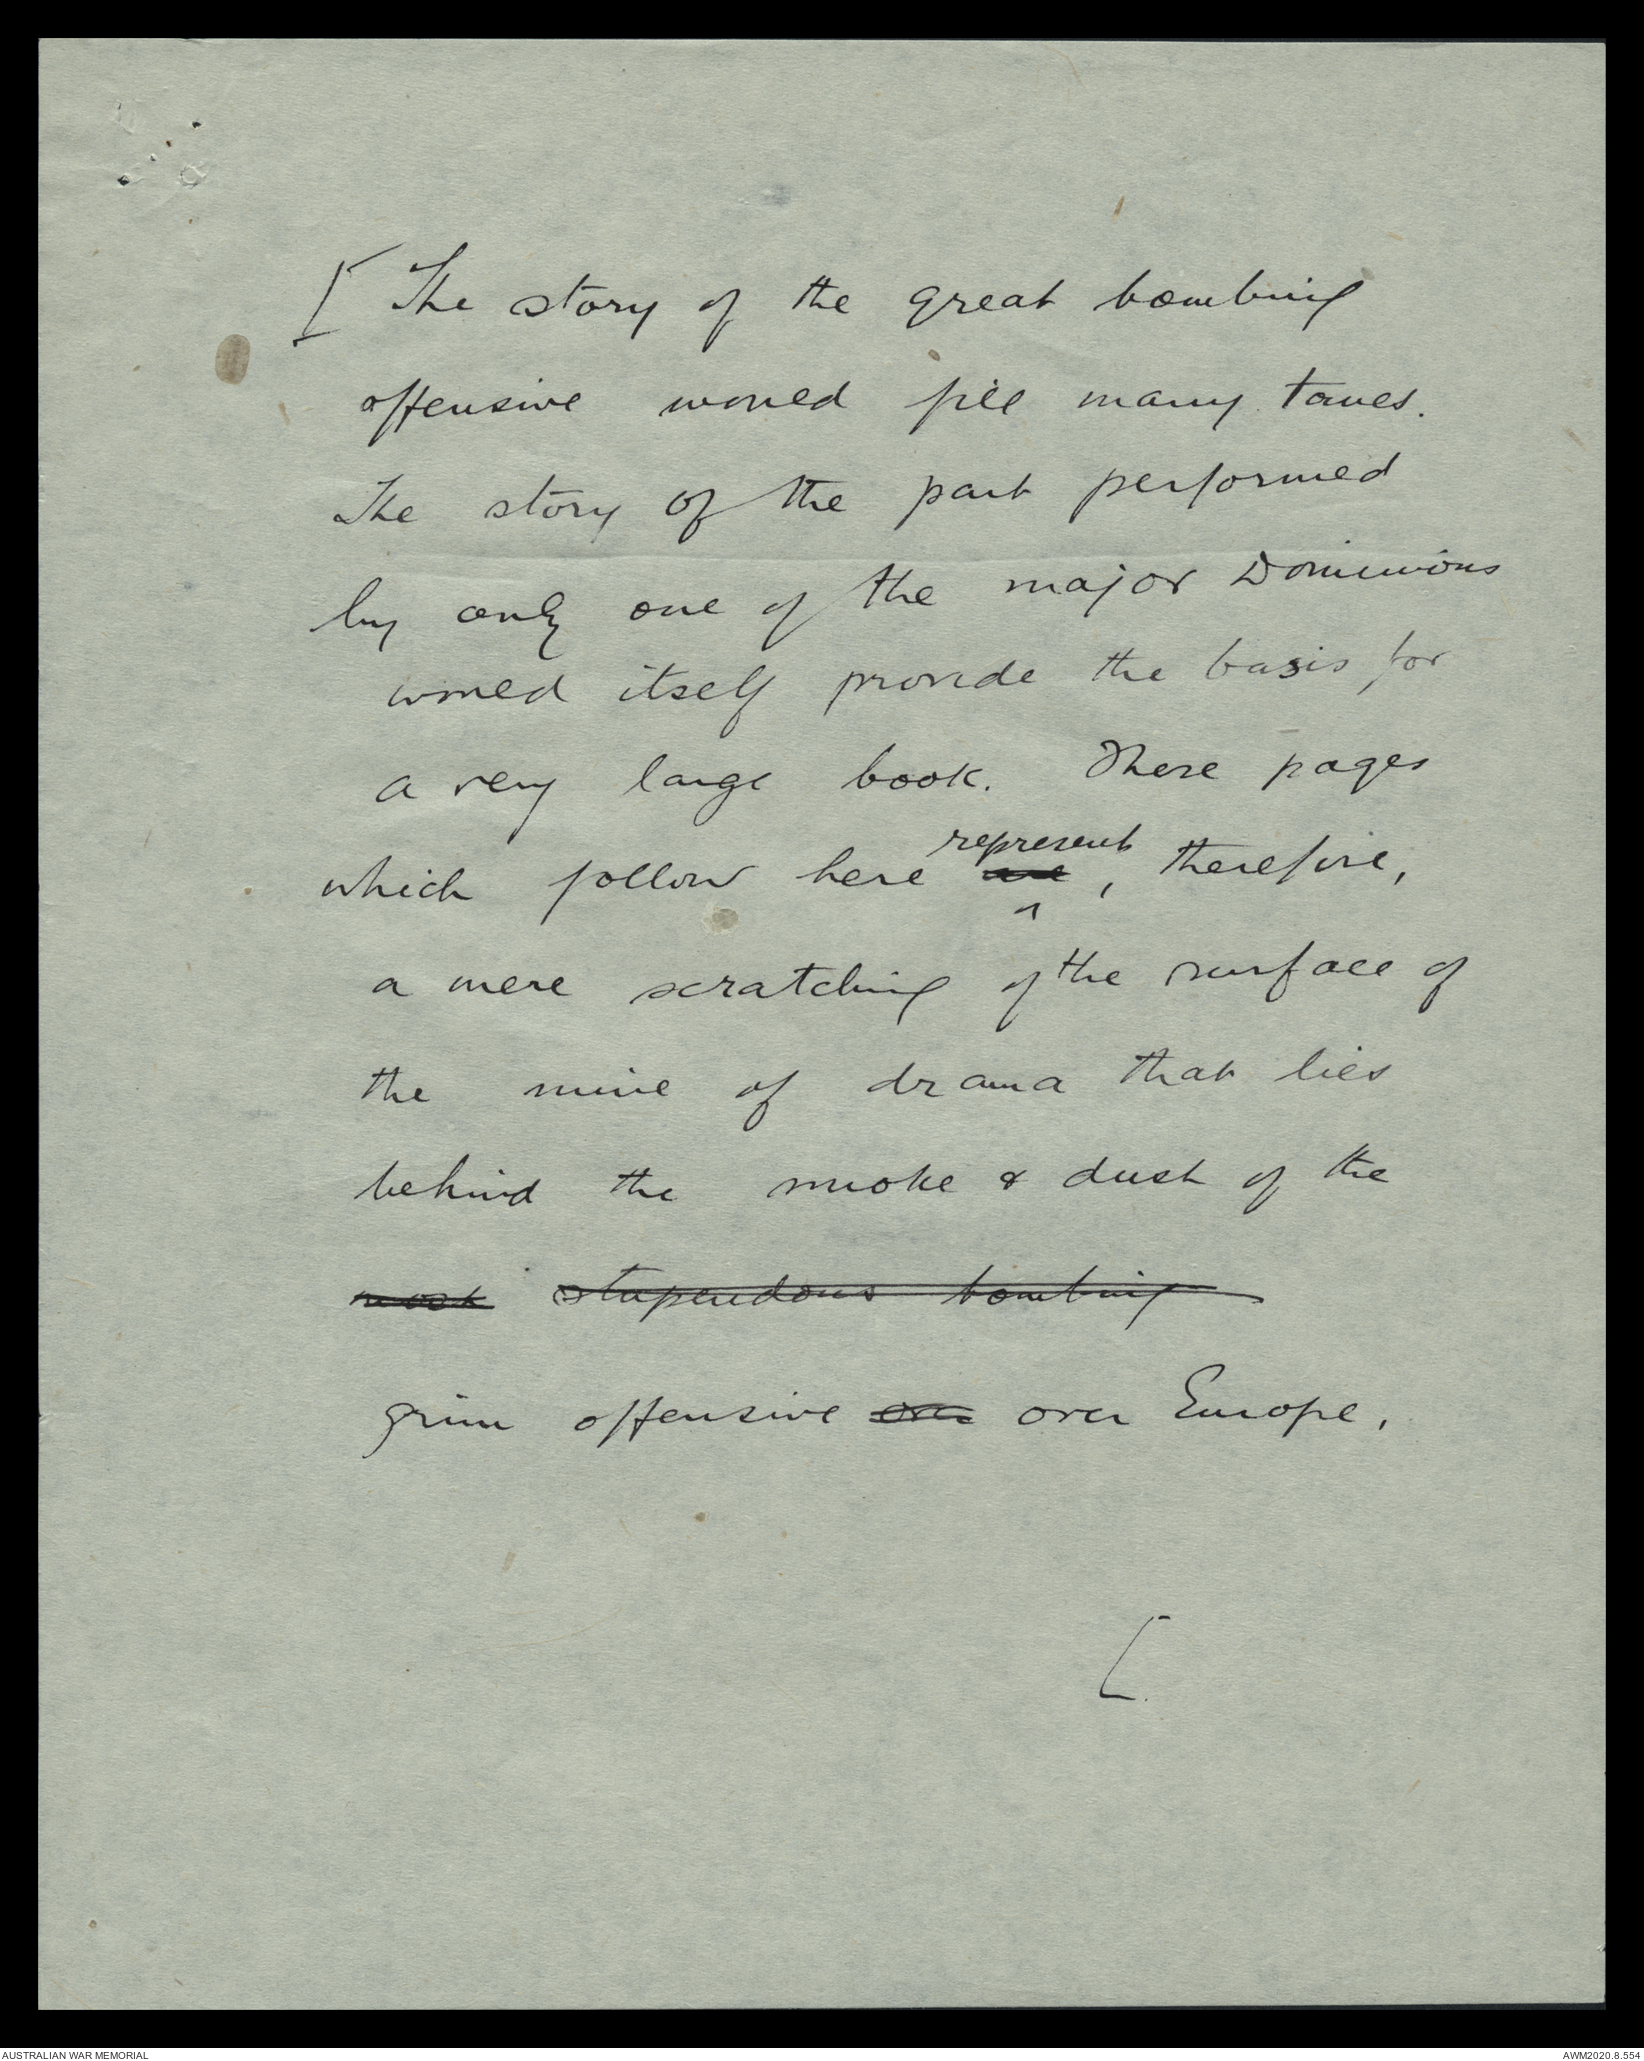 [ The story of the great bombing
offensive would fill many tomes.
The story of the part performed
by only one of the major Dominions
would itself provide the basis for
a very large book. These pages
represent
which follow here are , therefore,
^
a mere scratching of the surface of
the mine of drama that lies
behind the smoke & dust of the
most stupendous bombing
grim offensive over over Europe.
[
AUSTRALIAN WAR MEMORIAL
AWM2020.8.554